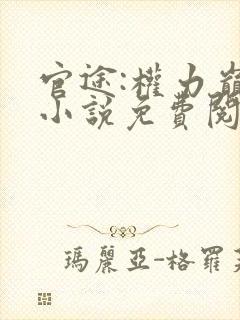 官途:權力巔
小說免費閱
瑪麗亞-格羅